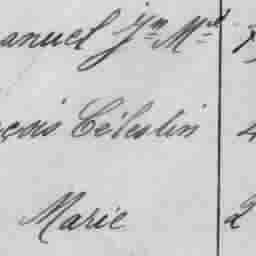 anuel Jn Mel
çois Célestin 4
Marie 2